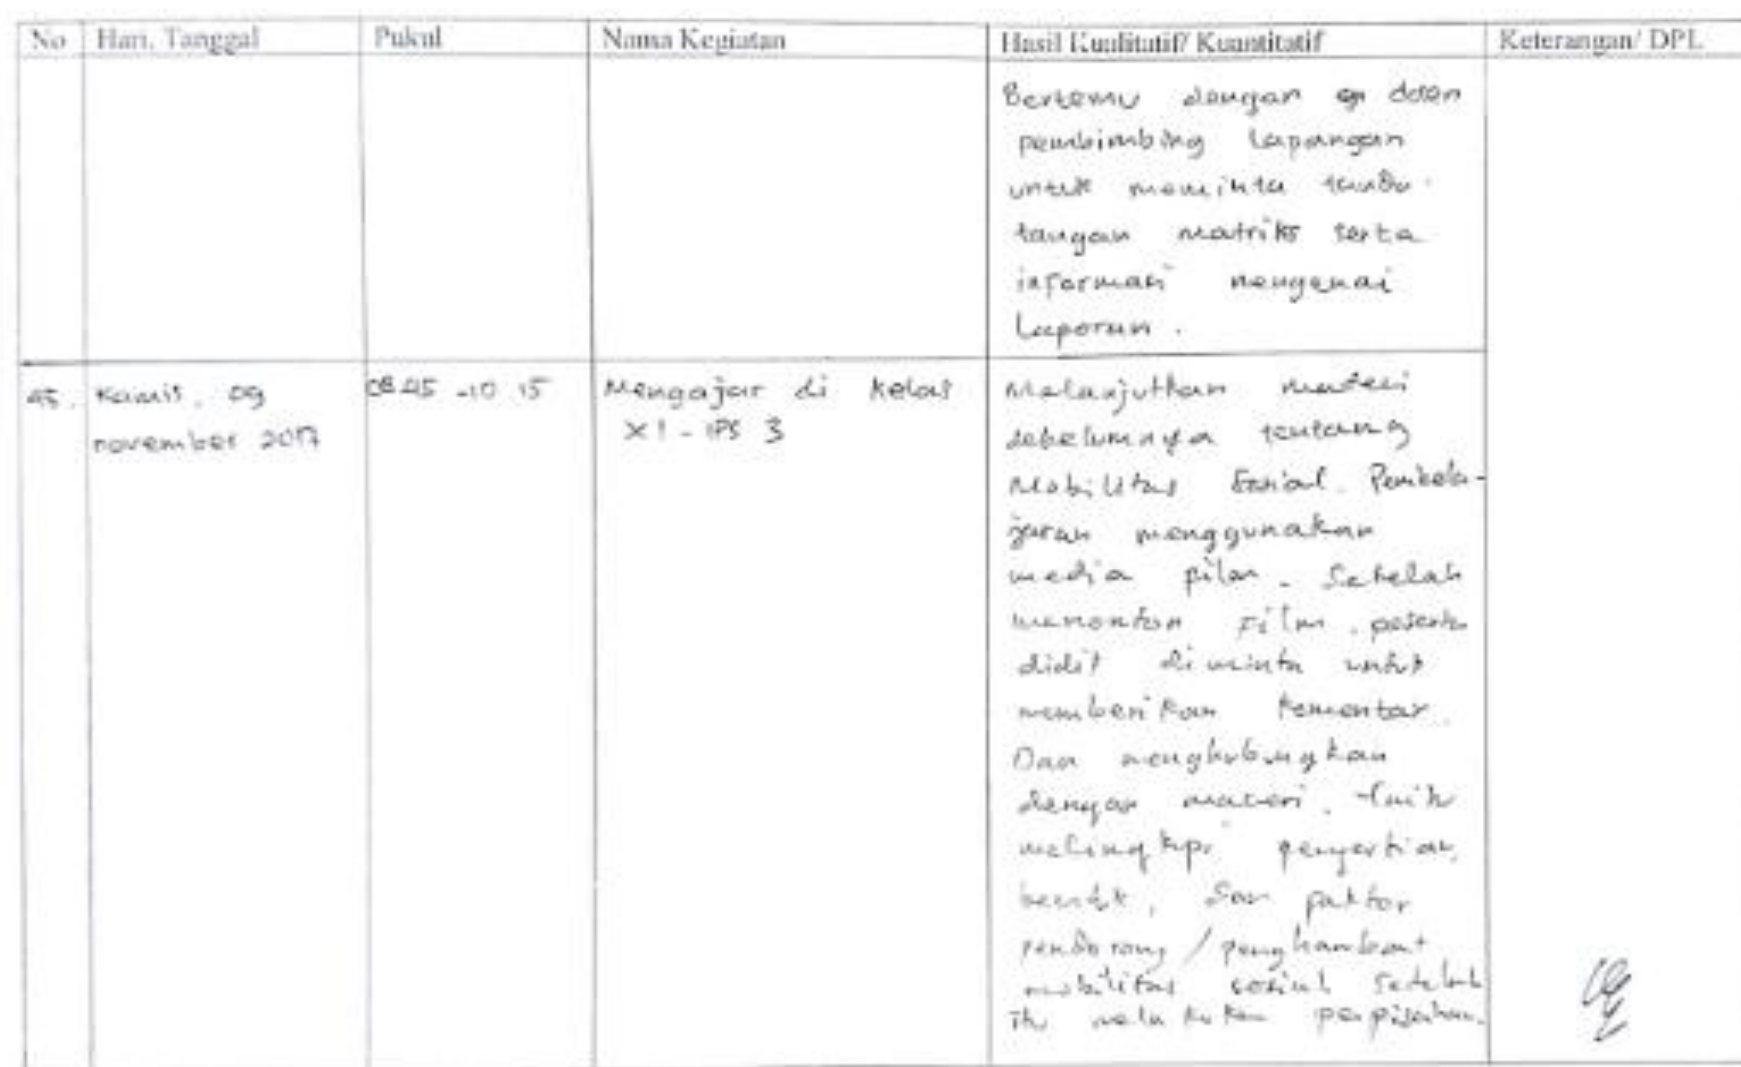 No Hari, Tanggal Pukul Nama Kegiatan Hasil Kualitatif/ Kuantitatif Keterangan/ DPL
Bertemu dengan dosen
pembimbing lapangan
untuk meminta tanda
tangan matriks serta
informasi mengenai
Laporan.
45. Kamis, 09 08.45 - 10.15 Mengajar di kelas Melanjutkan materi
november 2017 XI - IPS 3 sebelumnya tentang
Mobilitas Sosial. Pembela-
jaran menggunakan
media film. Setelah
menonton Film, peserta
didik diminta untuk
memberikan komentar.
Dan menghubungkan
dengan materi.
melingkupi pengertian,
bentuk, dan faktor
pendorong / penghambat
mobilitas sosial setelah
itu melakukan perpisahan.